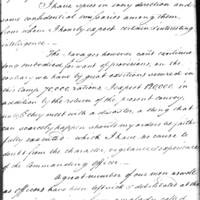 I have spies in every direction and
some confidential emissaries among them,
from whom I hourly expect certain & interesting
intelligence.
The savages however can't continue
long embodied for want of provisions, on the
contrary we have by great exertions secured in
this Camp 70000 rations & expect 120000 in
addition by the return of the present convoy
unless they meet with a disaster, a thing that
can scarcely happen should my orders be faith-
fully executed which I have no cause to
doubt from the character, vigilance & experience
of the Commanding Officer.
A great number of our men as well
as officers have been left sick & debilitated at the
malady called